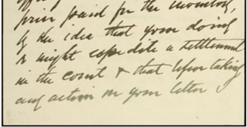 price paid for the inventory,
of the idea that your doing
so might expedite a settlement
in the court & that upon taking
any action on your letter I